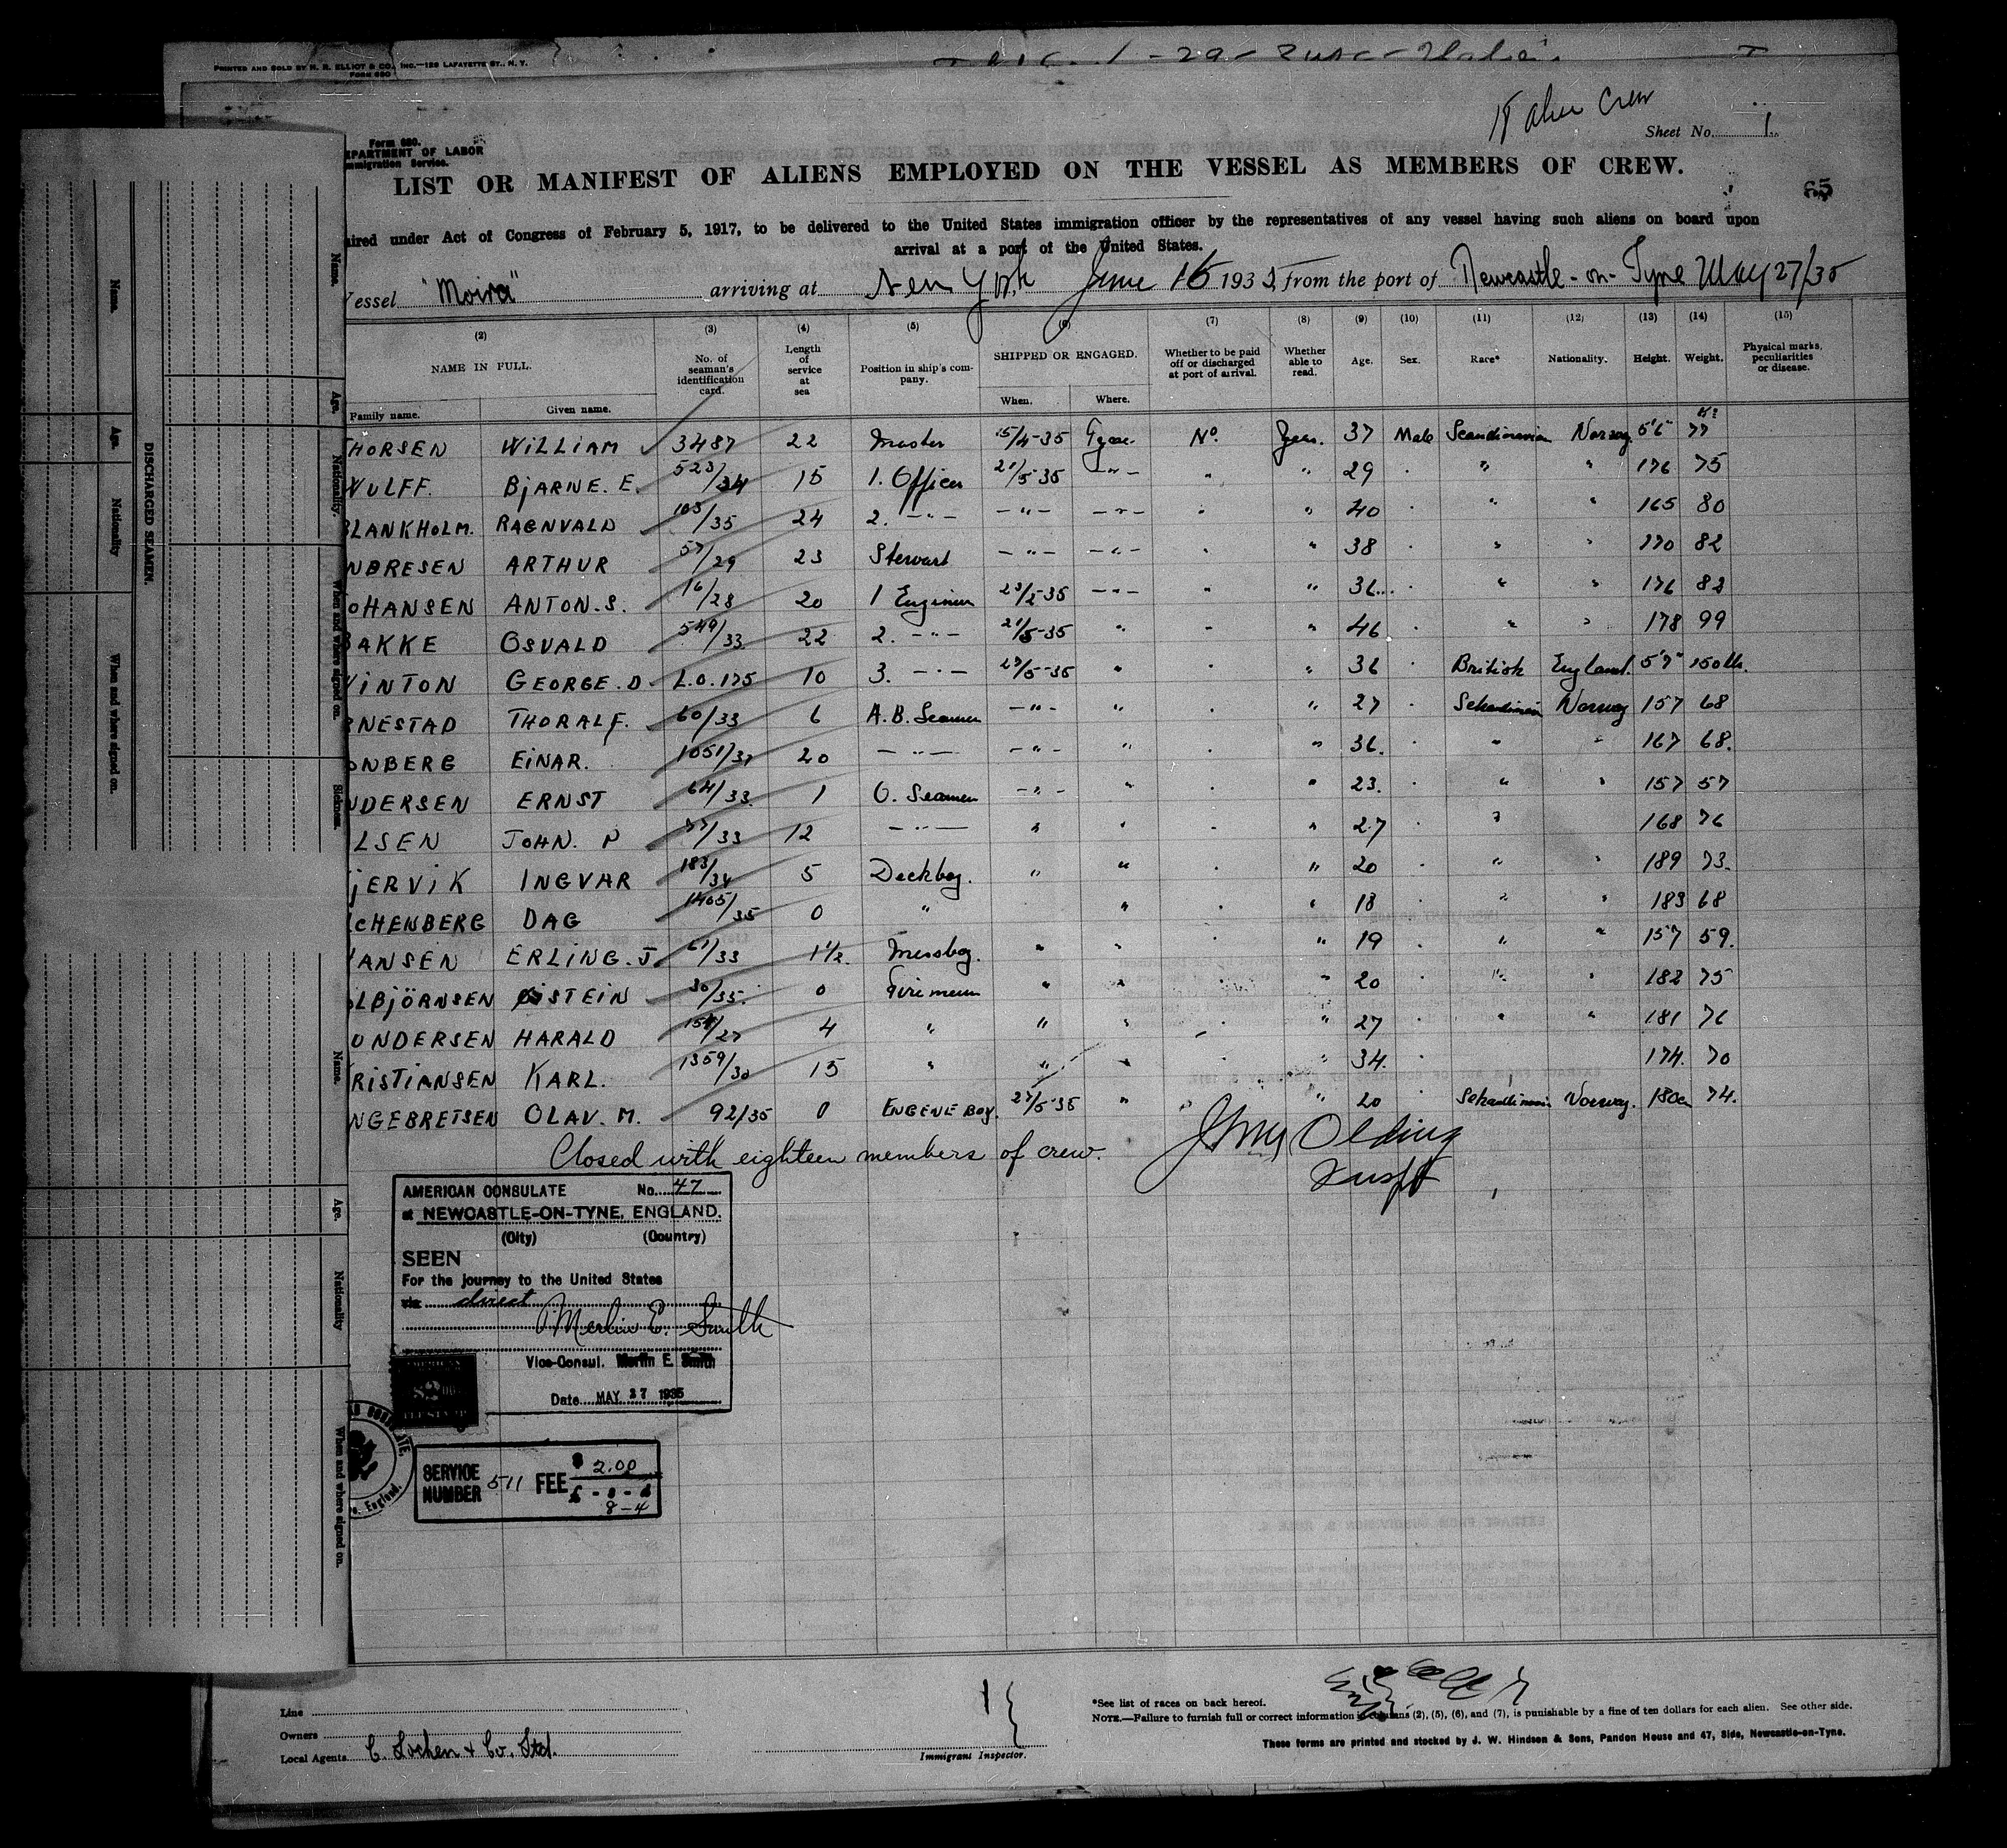 PRINTED AND SOLD BY H. R. ELLIOT & CO., INC.—129 LAFAYETTE ST., N. Y.
FORM 680
18 alien Crew
Sheet No. 1
Form 680.
EPARTMENT OF LABOR
mmigration Service.
LIST OR MANIFEST OF ALIENS EMPLOYED ON THE VESSEL AS MEMBERS OF CREW.
65
uired under Act of Congress of February 5, 1917, to be delivered to the United States immigration officer by the representatives of any vessel having such aliens on board upon
arrival at a port of the United States.
Vessel "Moira" arriving at New York June 16 1935, from the port of Newcastle-on-Tyne May 27/35
(2) (3) (4) (5) (6) (7) (8) (9) (10) (11) (12) (13) (14) (15)
NAME IN FULL. No. of seaman's identification card. Length of service at sea Position in ship's company. SHIPPED OR ENGAGED. Whether to be paid off or discharged at port of arrival. Whether able to read. Age. Sex. Race* Nationality. Height. Weight. Physical marks, peculiarities or disease.
Family name. Given name. When. Where.
THORSEN WILLIAM 3487 22 Master 15/4-35 Tyne No. Yes. 37 Male Scandinavian Norway 5'6" 77
WULFF. BJARNE. E. 523/34 15 1. Officer 21/5-35 -"- " " 29 " " 176 75
BLANKHOLM. RAGNVALD 103/35 24 2. -"- -"- -"- " " 40 " " 165 80
NDRESEN ARTHUR 57/29 23 Stewart -"- -"- " " 38 " " 170 82
OHANSEN ANTON.S. 16/28 20 1 Engineer 23/5-35 -"- " " 36 " " 176 82
BAKKE OSVALD 549/33 22 2. -"- 21/5-35 " " " 46 " " 178 99
VINTON GEORGE.D. L.O.175 10 3. -"- 27/5-35 " " 36 British England. 5'7" 150 lbs.
RNESTAD THORALF. 60/33 6 A.B. Seamen -"- " " 27 Schandinavian Norway 157 68
ONBERG EINAR. 1051/37 20 -"- -"- " " 36. " " 167 68.
NDERSEN ERNST 64/33 1 O. Seamen -"- " " 23. " " 157 57
LSEN JOHN. P 77/33 12 -"- " " " 27 " 168 76
JERVIK INGVAR 183/34 5 Deckboy. " " " 20 " " 189 73.
CHENBERG DAG 1465/35 0 " " " 18 " " 183 68
HANSEN ERLING.J. 61/33 1 1/2. Messboy. " " " 19 " " 157 59.
LBJÖRNSEN ØISTEIN 30/35. 0 Firemen " " " 20 " 182 75
UNDERSEN HARALD 151/27 4 " " " " 27 " " 181 76
RISTIANSEN KARL. 1359/30 15 " " " " 34. 174. 70
NGEBRETSEN OLAV. M. 92/35 0 ENGENE BOY. 27/5-35 " " 20 Schandinavian Norway. 180 74.
Closed with eighteen members of crew.
Olding
Inspt
AMERICAN CONSULATE No. 47
at NEWCASTLE-ON-TYNE, ENGLAND.
(City) (Country)
SEEN
For the journey to the United States
via direct
Merlin E. Smith
Vice-Consul. Merlin E. Smith
Date MAY 27 1935
SERVICE NUMBER 511 FEE $ 2.00
8-4
Line
Owners
Local Agents C. Lochen & Co. Ltd.
Immigrant Inspector.
*See list of races on back hereof.
NOTE.—Failure to furnish full or correct information in columns (2), (5), (6), and (7), is punishable by a fine of ten dollars for each alien. See other side.
These forms are printed and stocked by J. W. Hindson & Sons, Pandon House and 47, Side, Newcastle-on-Tyne.
DISCHARGED SEAMEN.
Name. Age. Nationality When and where signed on.
Name. Age. Nationality. When and where signed on. Sickness.
Name. Age. Nationality When and where signed on.